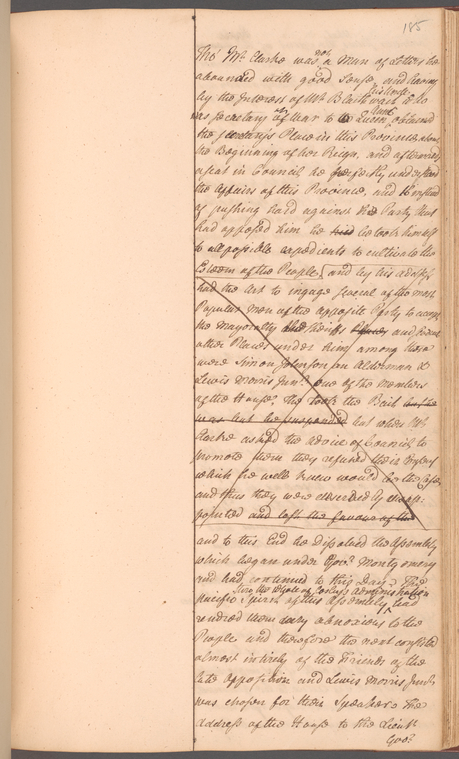 185
Tho' Mr. Clarke was not a Man of Letters he
abounded with good Sense, and having
by the Interest of Mr. Blathwait his Uncle
as Secretary of War to Queen Anne obtained
the Secretarys Place in this Province about
the Beginning of her Reign, and afterwards
a seat in Council he perfectly understood
the Affairs of this Province, and instead
of pushing hard against the Party that
had opposed him he had he took himself
to all possible expedients to cultivate the
Esteem of the People, and by his address
had the Art to ingage several of the most
Popular Men of the opposite Party to accept
the Mayoralty the Sheriffs and several
other Places under him, among them
were Simon Johnson an Alderman &
Lewis Morris Junr. one of the Members
of the House, they took the Bait but he
was but he suspended but when Mr.
Clarke asked the advice of Council to
promote them they refused their Consent
which he well knew would be the Case
and thus they were
pointed and lost the favour of the
and to this End he Dissolved the Assembly
which began under Govr. Montgomery
and had continued to this Day. The
pacific Spirit of this Assembly thro the whole of Cosbys Administration had
rendred them very obnoxious to the
People and therefore the next consisted
almost intirely of the Friends of the
late opposition and Lewis Morris Junr.
was chosen for their Speaker. The
Address of the House to the Lieut.
Govr.